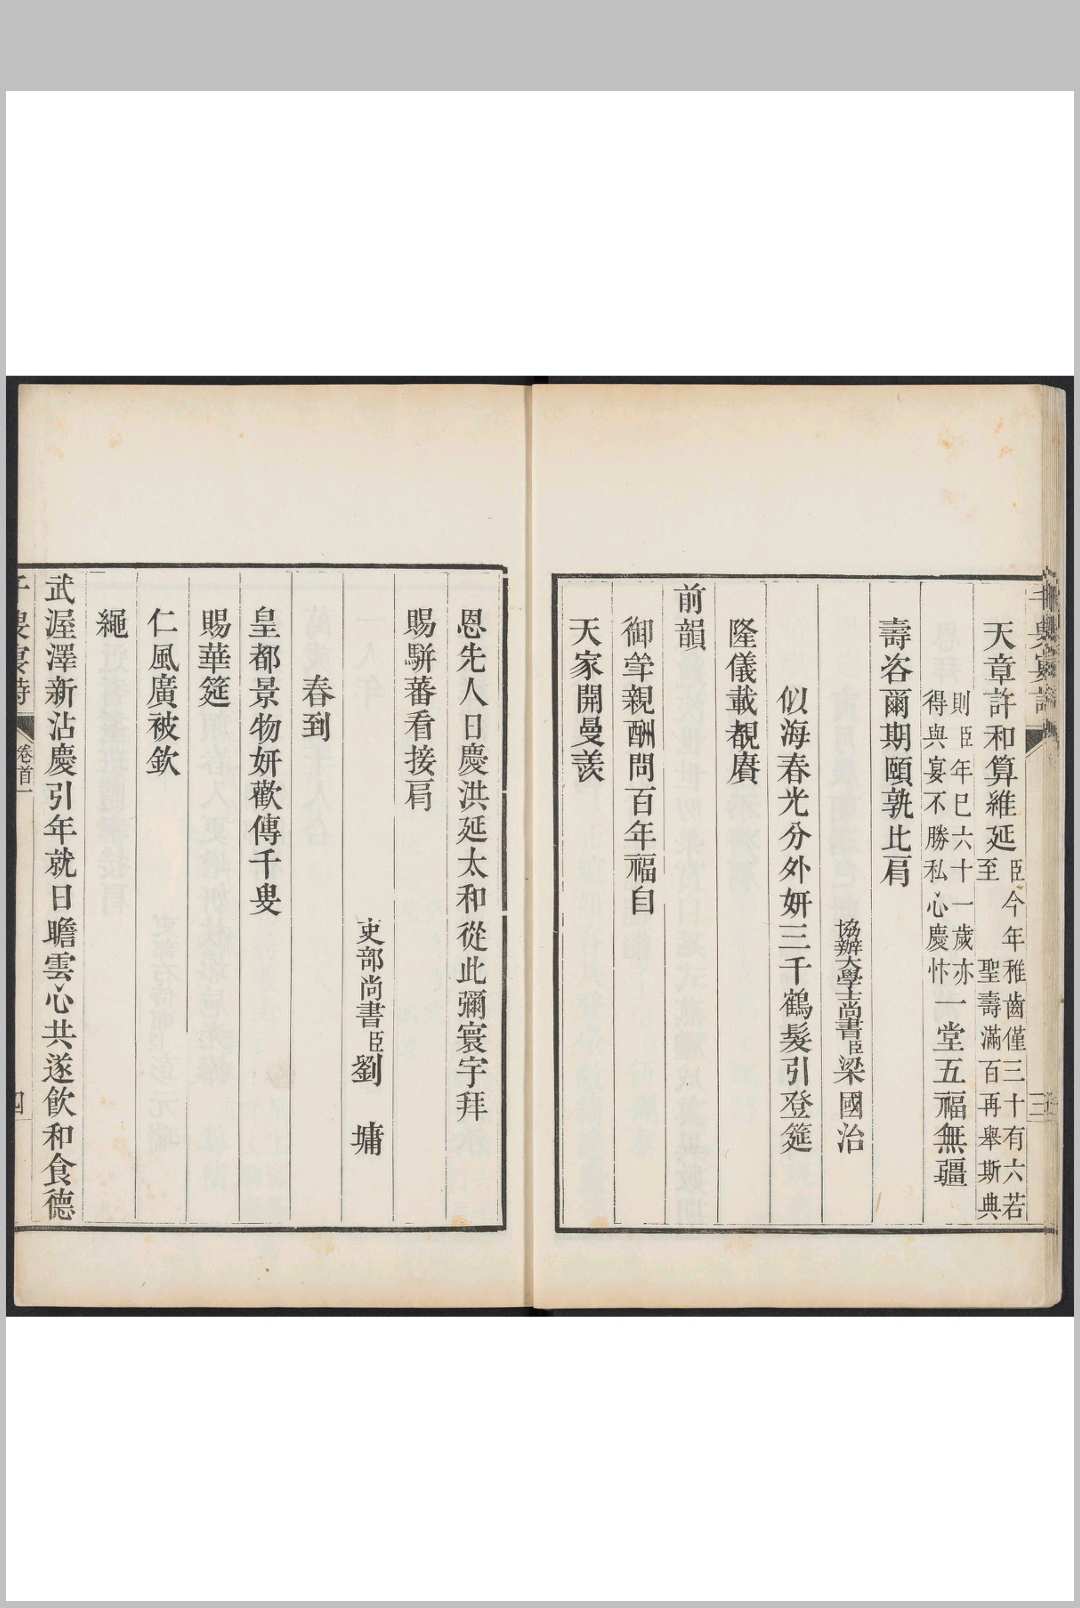 千叟宴詩
三
天章許和算維延臣今年稚齒僅三十有六若
至聖壽滿百再舉斯典
則臣年已六十一歲亦
得與宴不勝私心慶忭一堂五福無疆
壽咨爾期頤孰比肩
協辦大學士尚書臣梁國治
似海春光分外妍三千鶴髮引登筵
隆儀載覩賡
前韻
御筵親酬問百年福自
天家開曼羨
恩先人日慶洪延太和從此彌寰宇拜
賜駢蕃看接肩
吏部尚書臣劉墉
春到
皇都景物妍歡傳千叟
賜華筵
仁風廣被欽
繩
武渥澤新沾慶引年就日瞻雲心共遂飲和食德
千叟宴詩
卷首一
四